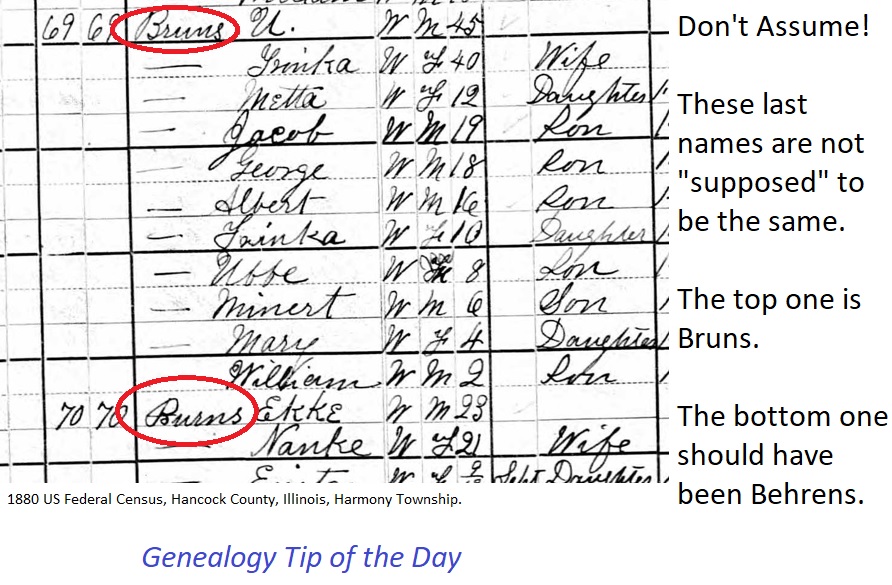 69 69 Bruns U. W M 45
— Trinka W F 40 Wife
— Metta W F 12 Daughter
— Jacob W M 19 Son
— George W M 18 Son
— Albert W M 16 Son
— Trinka W F 10 Daughter
— Ubbe W M 8 Son
— Minert W M 6 Son
— Mary W F 4 Daughter
William W M 2 Son
70 70 Burns Ekke W M 23
— Nanke W F 21 Wife
W F Sept Daughter
1880 US Federal Census, Hancock County, Illinois, Harmony Township.
Genealogy Tip of the Day
Don't Assume!
These last
names are not
"supposed" to
be the same.
The top one is
Bruns.
The bottom one
should have
been Behrens.